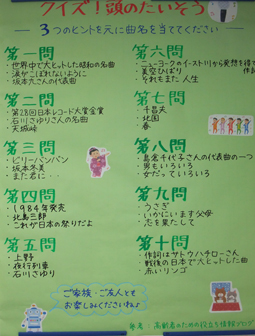 クイズ！頭のたいそう
3つのヒントを元に曲名を当ててください
第一問
・世界中で大ヒットした昭和の名曲
・涙がこぼれないように
・坂本九さんの代表曲
第二問
・第28回日本レコード大賞金賞
・石川さゆりさんの名曲
・天城峠
第三問
・ビリーバンバン
・坂本冬美
・また君に…
第四問
・1984年発売
・北島三郎
・これが日本の祭りだよ
第五問
・上野
・夜行列車
・石川さゆり
第六問
・ニューヨークのイースト川から発想を得て
・美空ひばり
・それもまた人生
第七問
・千昌夫
・北国
・春
第八問
・島倉千代子さんの代表曲の一つ
・男もいろいろ
・女だっていろいろ
第九問
・うさぎ
・いかにいます父母
・志を果たして
第十問
・作詞はサトウハチローさん
・戦後の日本で大ヒットした曲
・赤いリンゴ
ご家族・ご友人とも
お楽しみくださいね♪
参考：高齢者のための役立ち情報ブログ